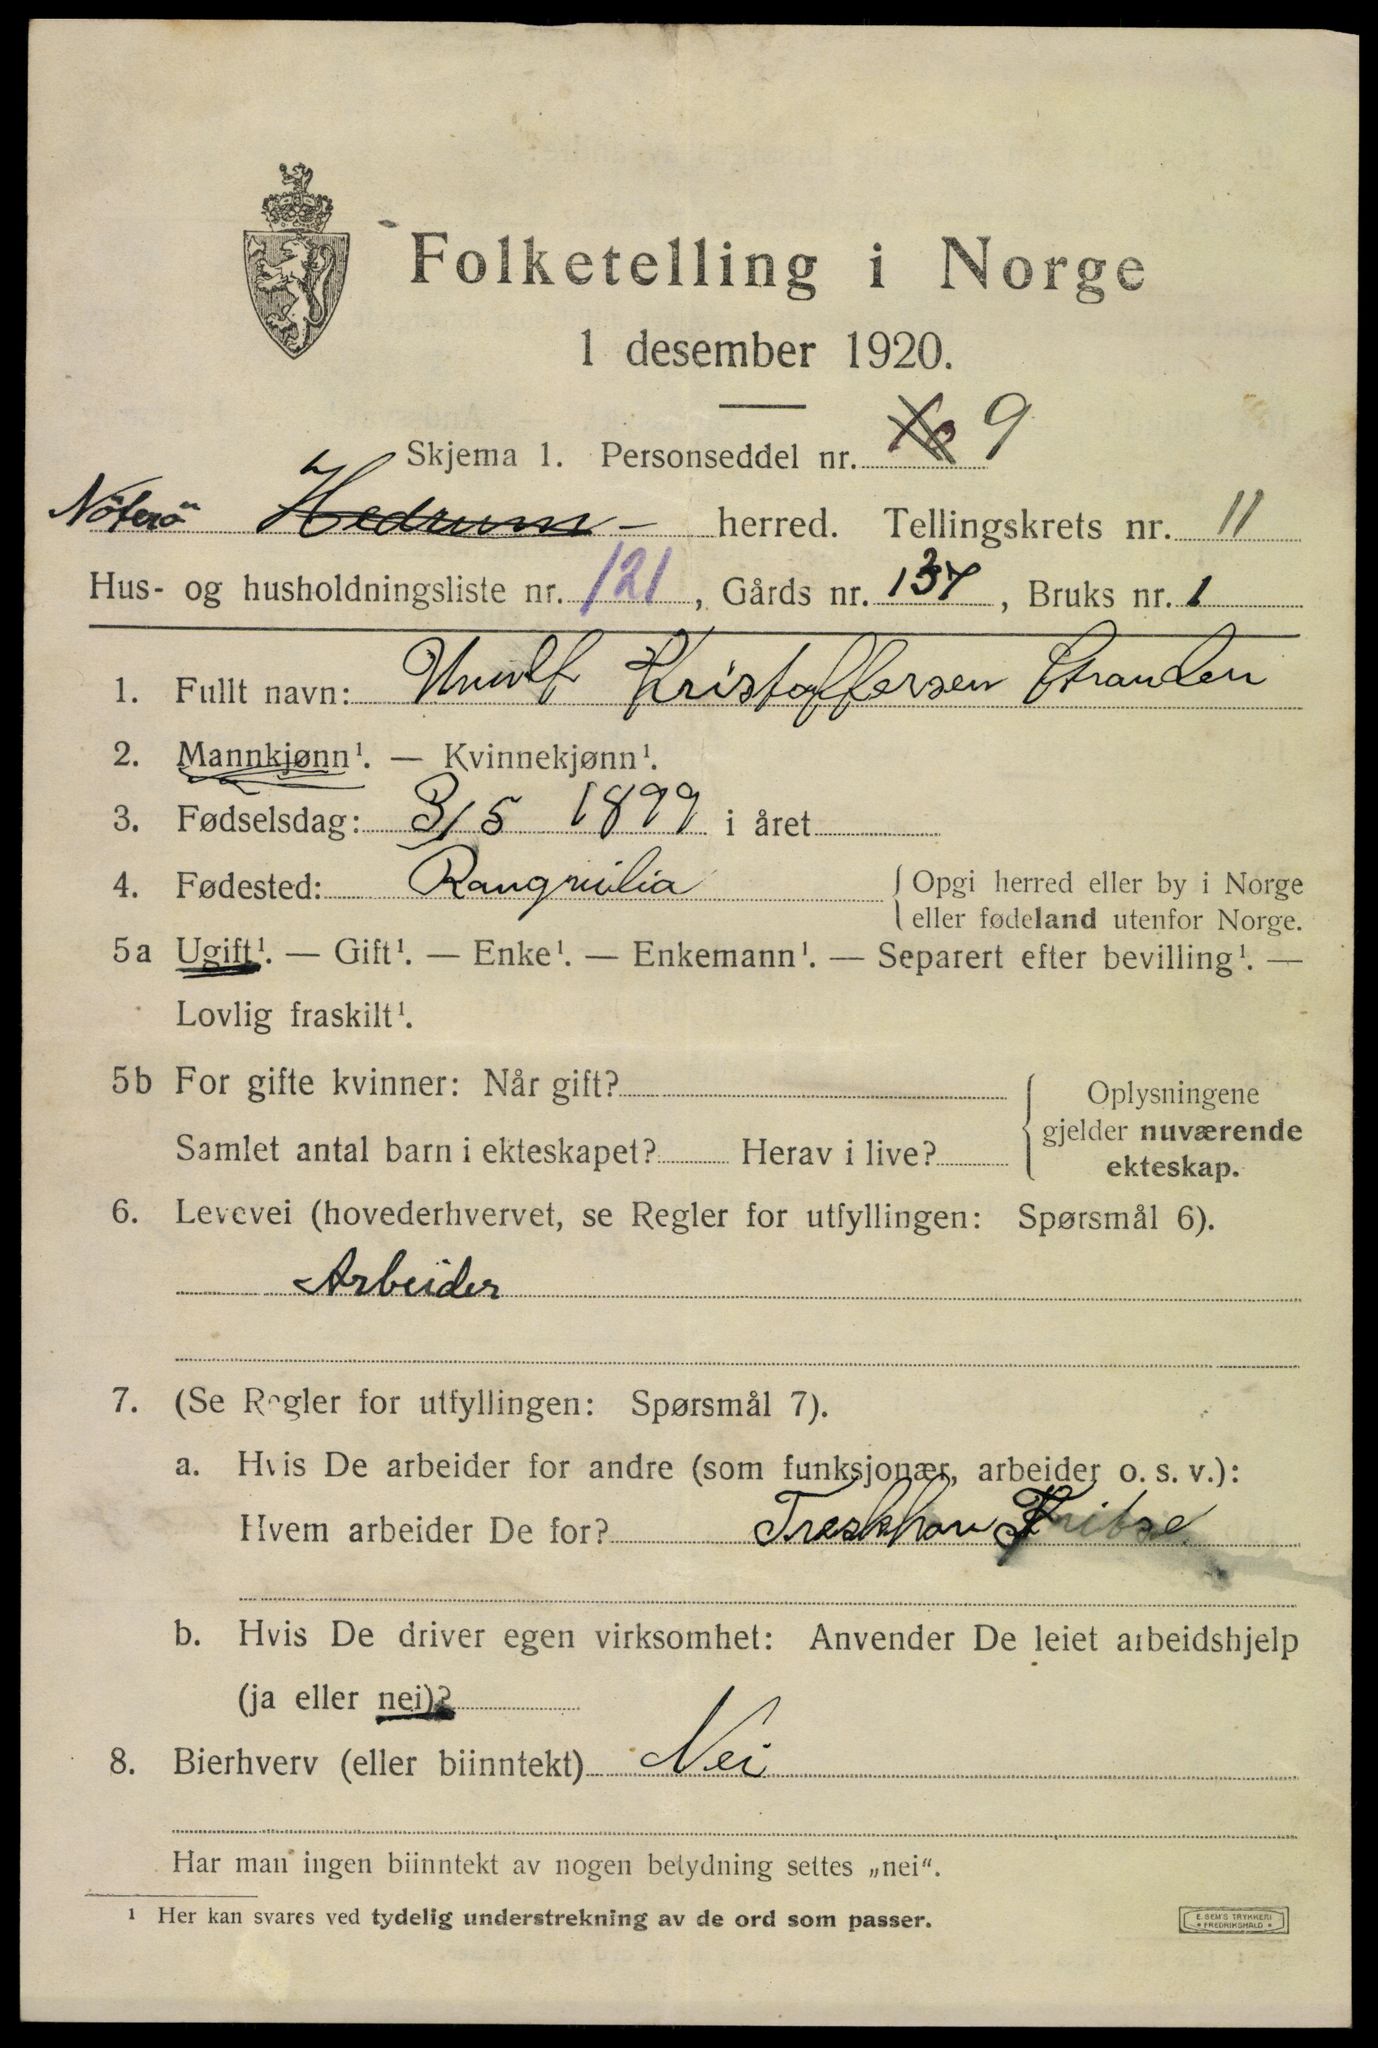 Folketelling i Norge
1 desember 1920.
Skjema 1. Personseddel nr. 9
Nöterö Hedrum herred. Tellingskrets nr. 11
Hus- og husholdningsliste nr. 121, Gårds nr. 137, Bruks nr. 1
1. Fullt navn: Kristoffersen Stranden
2. Mannkjønn¹. — Kvinnekjønn¹.
3. Fødselsdag: 3/5 1899 i året
4. Fødested: { Opgi herred eller by i Norge
eller fødeland utenfor Norge.
5a Ugift¹. — Gift¹. — Enke¹. — Enkemann¹. — Separert efter bevilling¹. —
Lovlig fraskilt¹.
5b For gifte kvinner: Når gift? { Oplysningene
gjelder nuværende
Samlet antal barn i ekteskapet? Herav i live?
ekteskap.
6. Levevei (hovederhvervet, se Regler for utfyllingen: Spørsmål 6).
Arbeider
7. (Se Regler for utfyllingen: Spørsmål 7).
a. Hvis De arbeider for andre (som funksjonær, arbeider o. s. v.):
Hvem arbeider De for?
b. Hvis De driver egen virksomhet: Anvender De leiet arbeidshjelp
(ja eller nei)?
8. Bierhverv (eller biinntekt) Nei
Har man ingen biinntekt av nogen betydning settes „nei“.
¹ Her kan svares ved tydelig understrekning av de ord som passer.
E. SEM'S TRYKKERI
FREDRIKSHALD